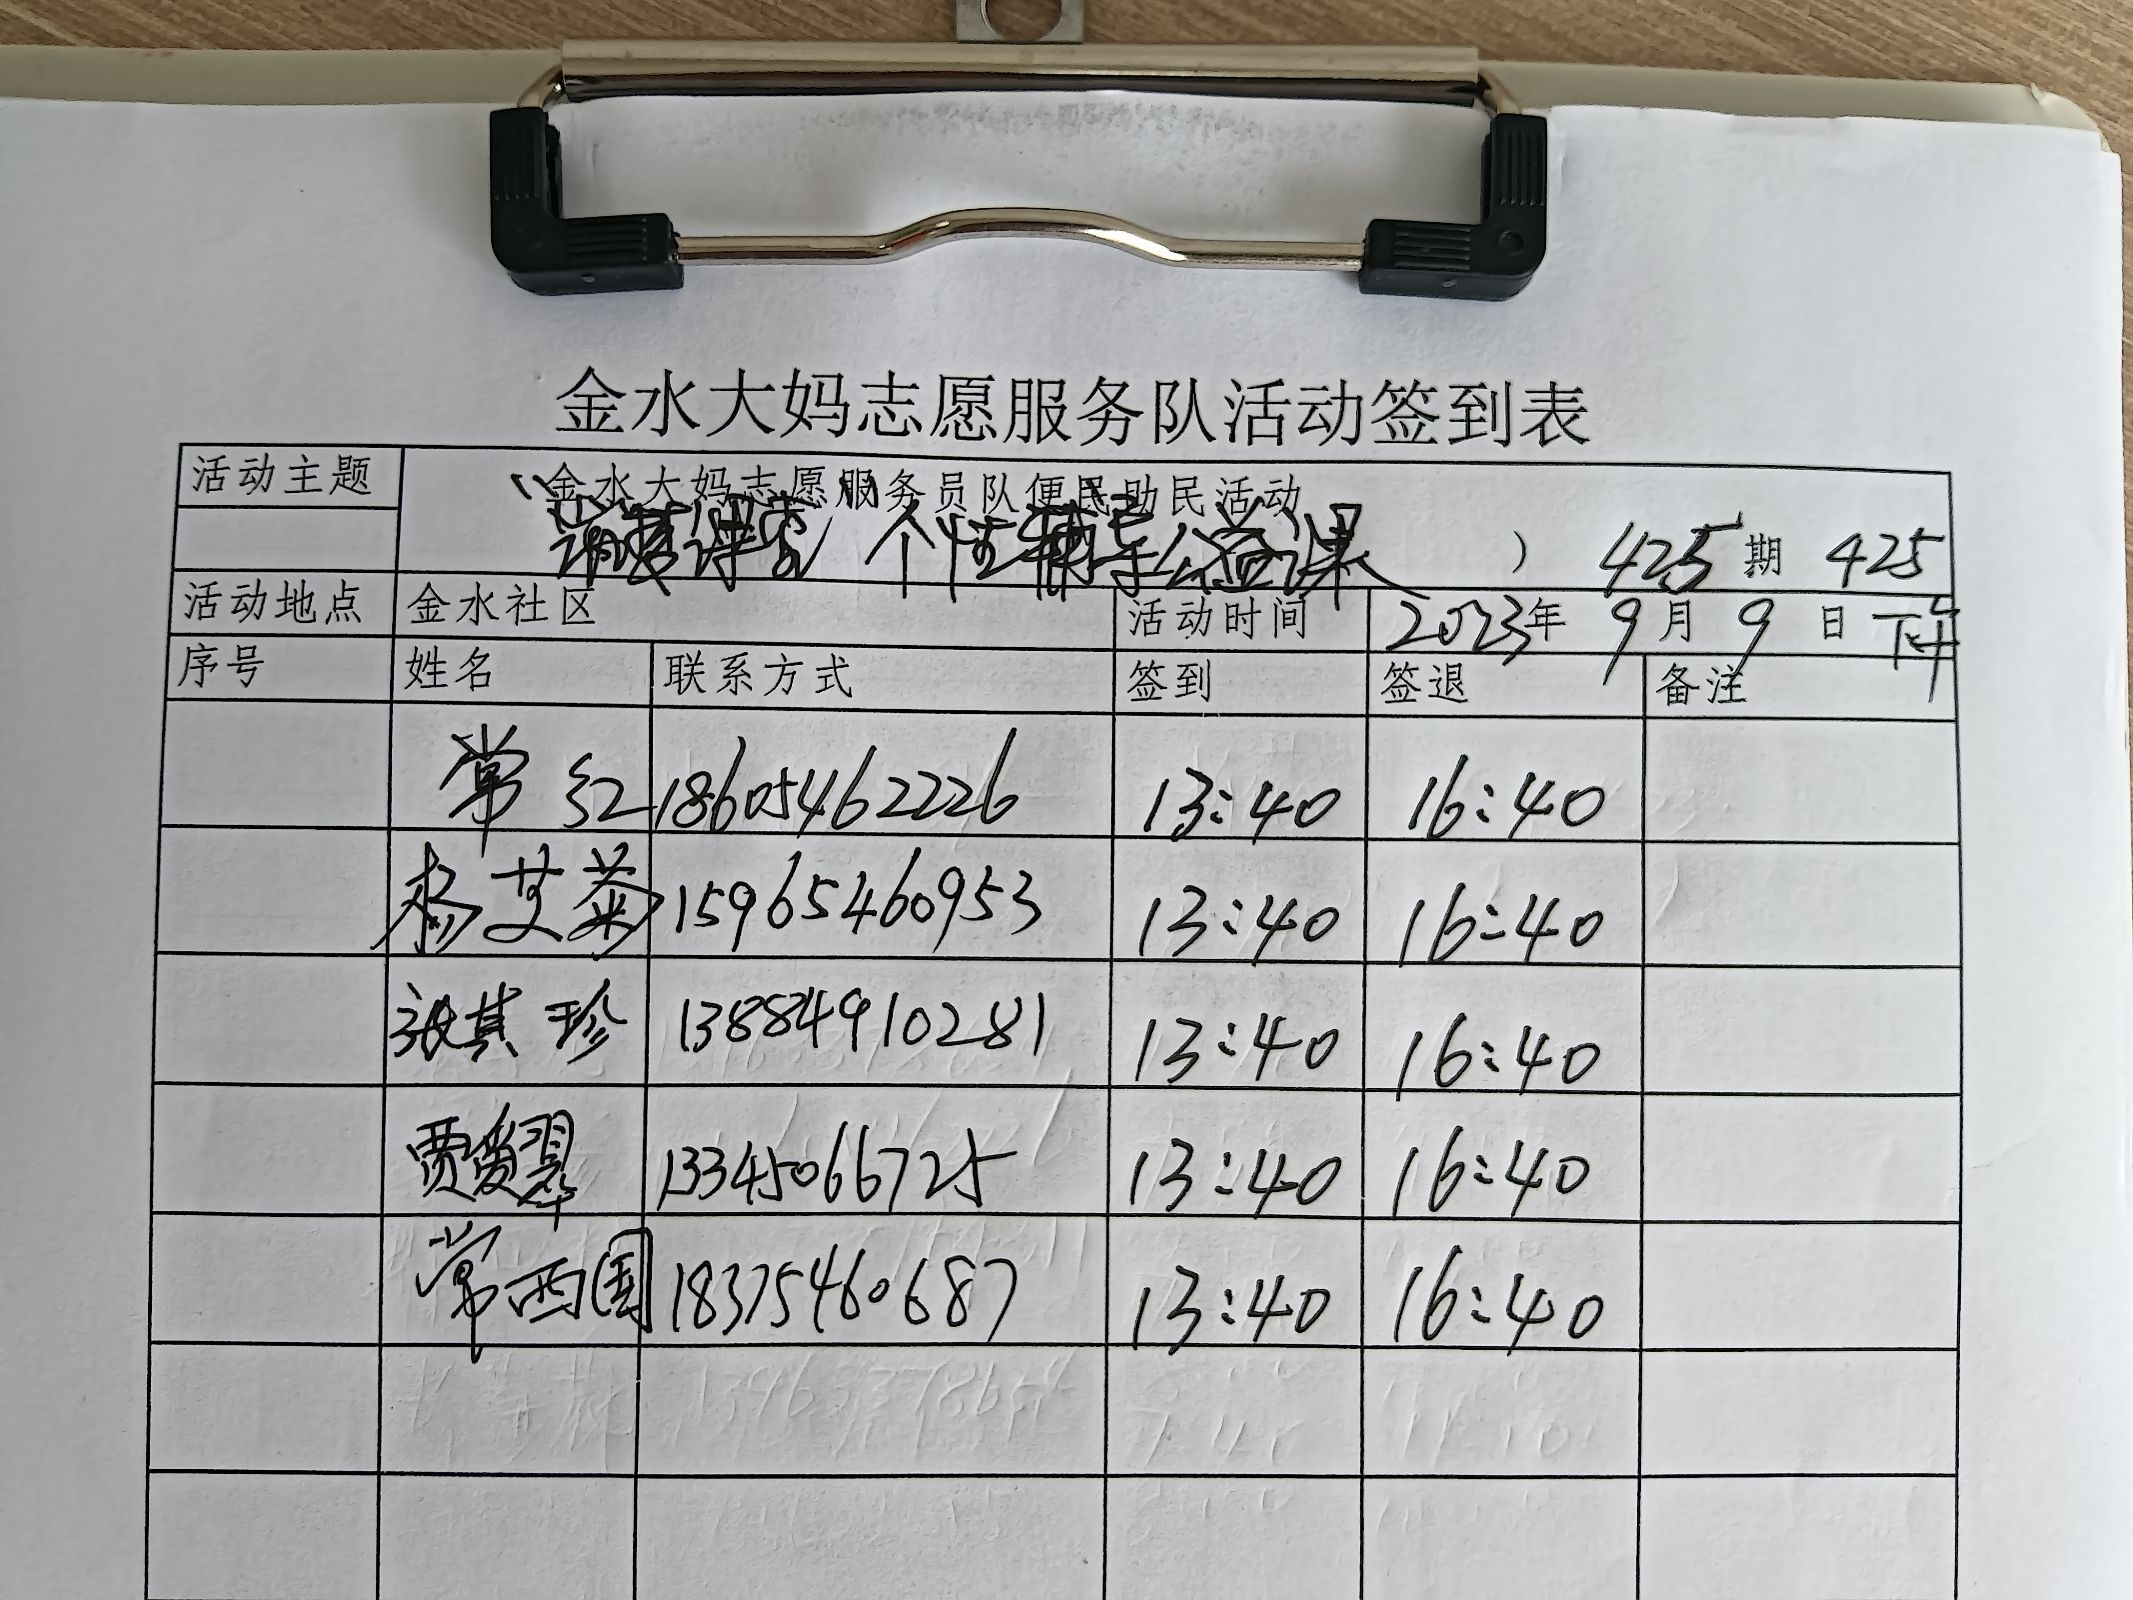 金水大妈志愿服务队活动签到表
活动主题
金水大妈志愿服务员队便民助民活动
课堂 个性辅导公益课 ） 425期 425
活动地点 金水社区 活动时间 2023年 9月 9日 下午
序号 姓名 联系方式 签到 签退 备注
常红 18605462226 13:40 16:40
杨艾菊 15965460953 13:40 16:40
张其珍 13884910281 13:40 16:40
贾爱翠 13345066725 13:40 16:40
常西国 18375460687 13:40 16:40